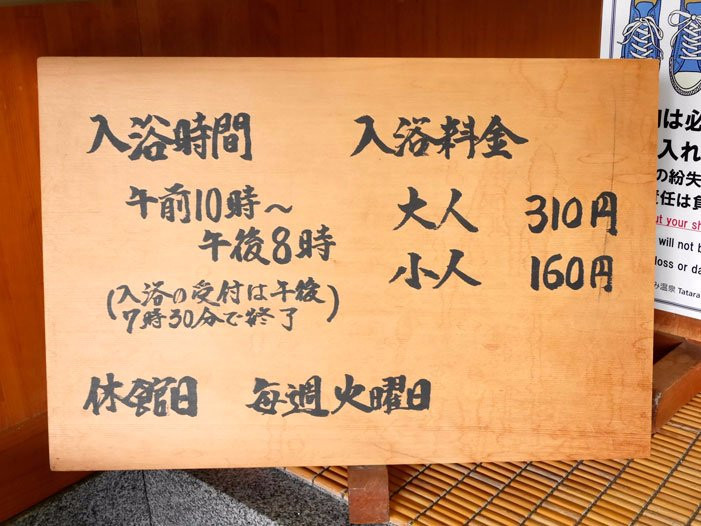 入浴時間
午前10時～
午後8時
(入浴の受付は午後
7時30分で終了)
休館日 毎週火曜日
入浴料金
大人 310円
小人 160円
は必
入れ
の紛失
責任は負
ut your sh
will not b
loss or da
み温泉 Tatara